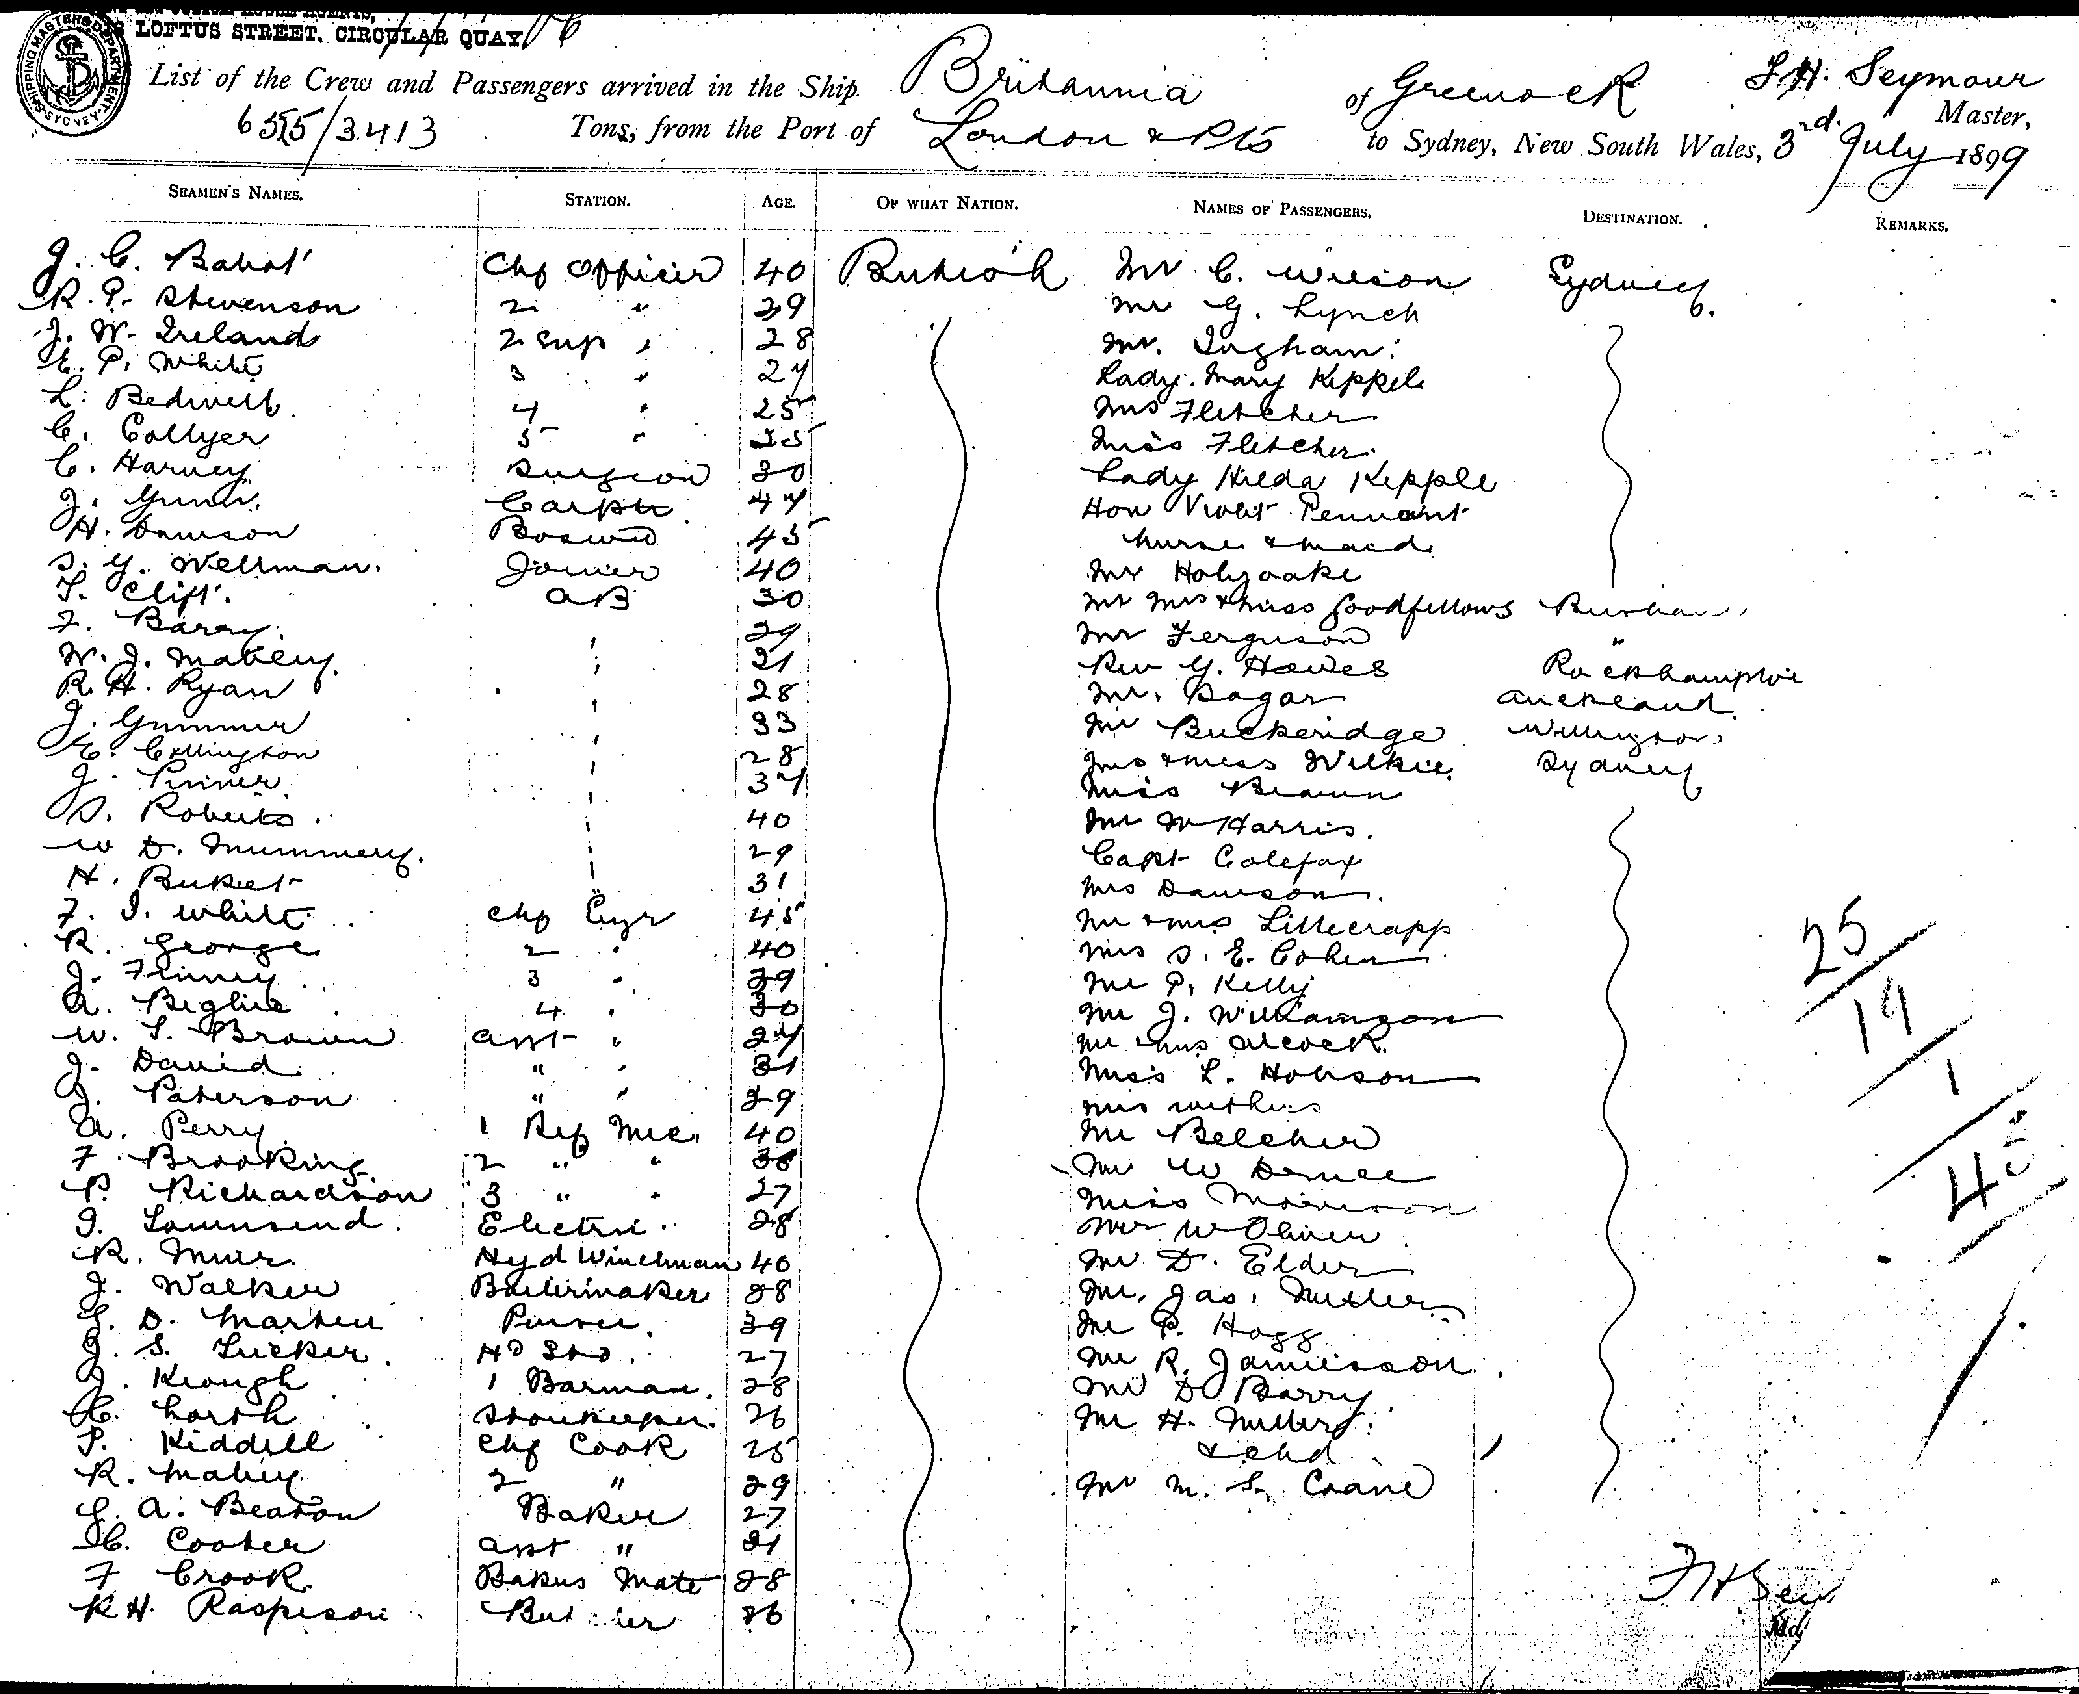 LOFTUS STREET, CIRCULAR QUAY,
SHIPPING MASTER'S DEPARTMENT SYDNEY
List of the Crew and Passengers arrived in the Ship Britannia of Greenock F H. Seymour Master,
6525/3413 Tons, from the Port of London & Pts to Sydney, New South Wales, 3rd. July 1899
SEAMEN'S NAMES. STATION. AGE. OF WHAT NATION. NAMES OF PASSENGERS. DESTINATION. REMARKS.
J. C. Babot Chf Officer 40 British Mr C. Wilson Sydney
R. P. Stevenson 2 " 39 Mr G. Lynch
J. W. Ireland 2 Sup " 28 Mr. Ingham
E. P. White 3 " 27 Lady Mary Keppel
L. Bedwell 4 " 25 Mrs Fletcher
C. Collyer 5 " 25 Miss Fletcher
C. Harvey Surgeon 30 Lady Hilda Kepple
J. Gunn Carptr 47 Hon Violet Pennant
H. Dawson Boswn 45 nurse & maid
S. G. Wellman Joiner 40 Mr Holyoake
T. Clift AB 30 Mr Mrs & Miss Goodfellows
F. Barry " 29 Mr Ferguson "
W. J. Mabley " 21 Rev G. Hawes Rockhampton
R. H. Ryan " 28 Mr. Sagar Auckland
J. Gummer " 33 Mr Buckeridge Wellington
E. Collington " 28 Mrs & Miss Wilkie Sydney
J. Pinner " 37 Miss Brown
S. Roberts " 40 Mr W Harris
W D. Mummery " 29 Capt Colefax
H. Burket " 31 Mrs Dawson
F. I. White Chf Engr 45 Mr & Mrs Littlecrapp
R. George 2 " 40 Mrs S. E. Cohen
J. Finney 3 " 39 Mr P. Kelly
A. 4 " 30 Mr J. Williamson
W. S. Brown Asst " 27 Mr & Mrs Alcock
J. David " " 31 Miss L. Hobson
J. Paterson " " 29 Mrs Withers
A. Perry 1 Ref Mec. 40 Mr Belcher
F. Brooking 2 " " 38 Mr W
P. Richardson 3 " " 27 Miss Morrison
J. Townsend Electrn 28 Mr W Oliver
R. Muir Hyd Winchman 40 Mr D. Elder
J. Walker Boilermaker 28 Mr. Jas. Miller
G. D. Martin Purser 39 Mr P. Hogg
J. S. Tucker Hd Std 27 Mr R. Jamiesson
J. Keough 1 Barman 28 Mr D Barry
C. Storekeeper 26 Mr H. Millers
S. Kiddell Chf Cook 25 & chd
R. Mabey 2 " 29 Mr M. S. Crane
G. A. Beaton Baker 27
C. Cooter Asst " 21
F Crook Bakers Mate 28
R H. Raspison Butcher 26
25
19
1
45
F H Sey